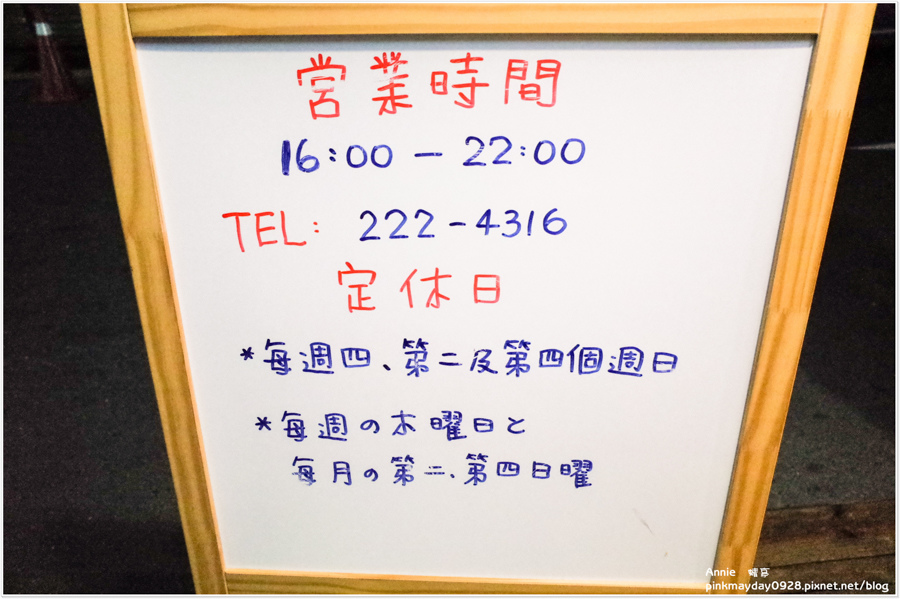 営業時間
16:00 - 22:00
TEL: 222-4316
定休日
*每週四、第二及第四個週日
*每週の木曜日と
每月の第二、第四日曜
Annie
pinkmayday0928.pixnet.net/blog